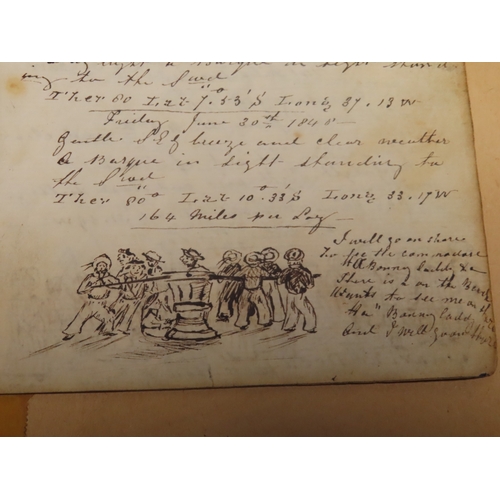 a Barque in sight
to the S wd
Ther 80 Lat 7°.53'S Long 37.13 W
Friday June 30th 184
Gentle SE breeze and clear weather
A Barque in sight standing to
the S wd
Ther 80° Lat 10°.33'S Long 33.17 W
164 Miles per Log
I will go on shore
to see the commodore
Bonny ladd
There is 2 on the
Wants to see me on
Ha" Bonny ladd
And I Will go on